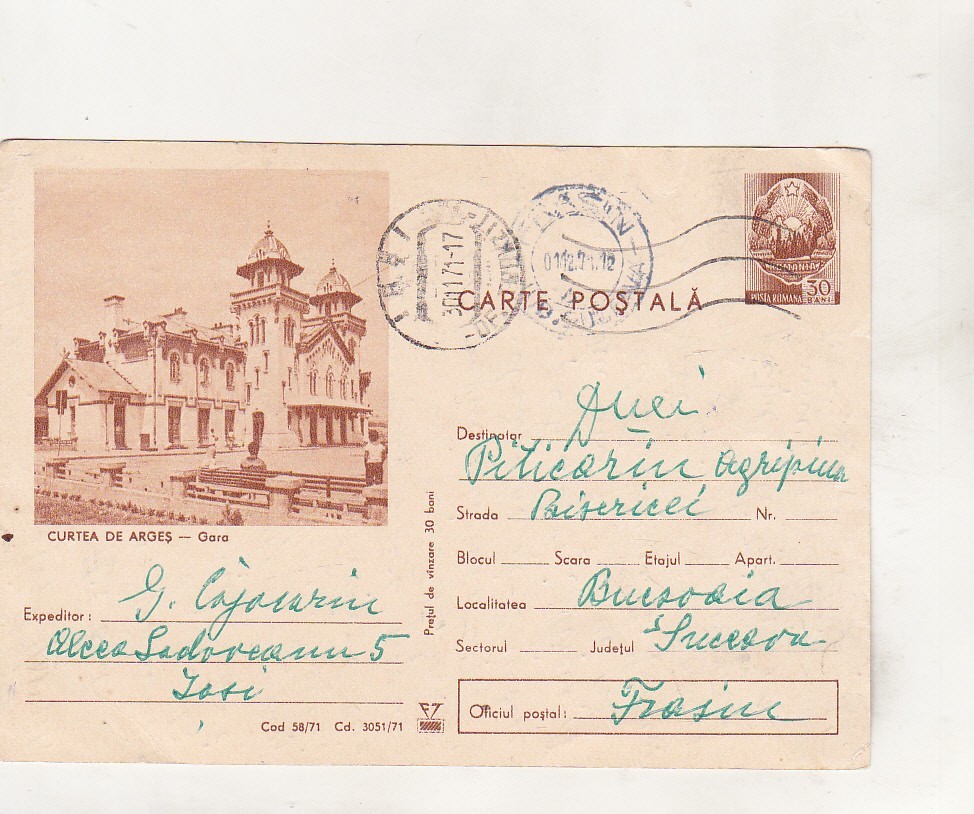 CARTE POŞTALĂ
ROMANIA
POSTA ROMANA 30 BANI
IAŞI
30.11.71-17
FRASIN
01.12.71.12
CURTEA DE ARGEŞ — Gara
Expeditor: G. Cojocariu
Aleea Sadoveanu 5
Iasi
Cod 58/71 Cd. 3051/71
Preţul de vînzare 30 bani
Destinatar Dnei
Piticariu Agripina
Strada Bisericei Nr.
Blocul Scara Etajul Apart.
Localitatea Bucsoaia
Sectorul Judeţul Suceava
Oficiul poştal: Frasin